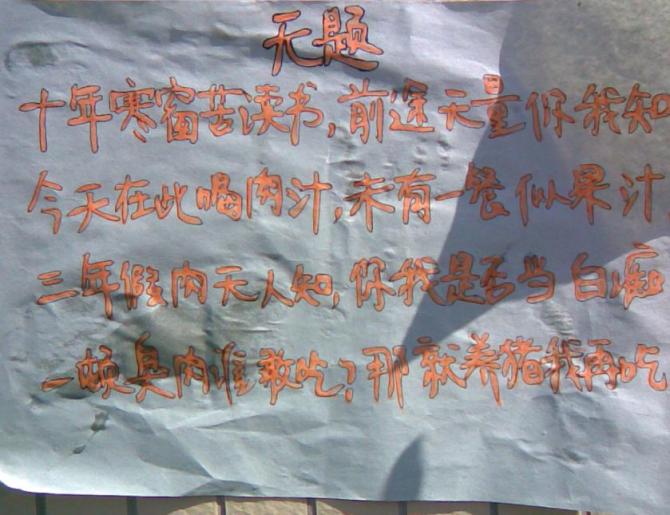 无题
十年寒窗苦读书,前途无量你我知
今天在此喝肉汁,未有一餐似果汁
三年假肉无人知,你我是否当白痴
一顿臭肉谁敢吃?那就养猪我再吃